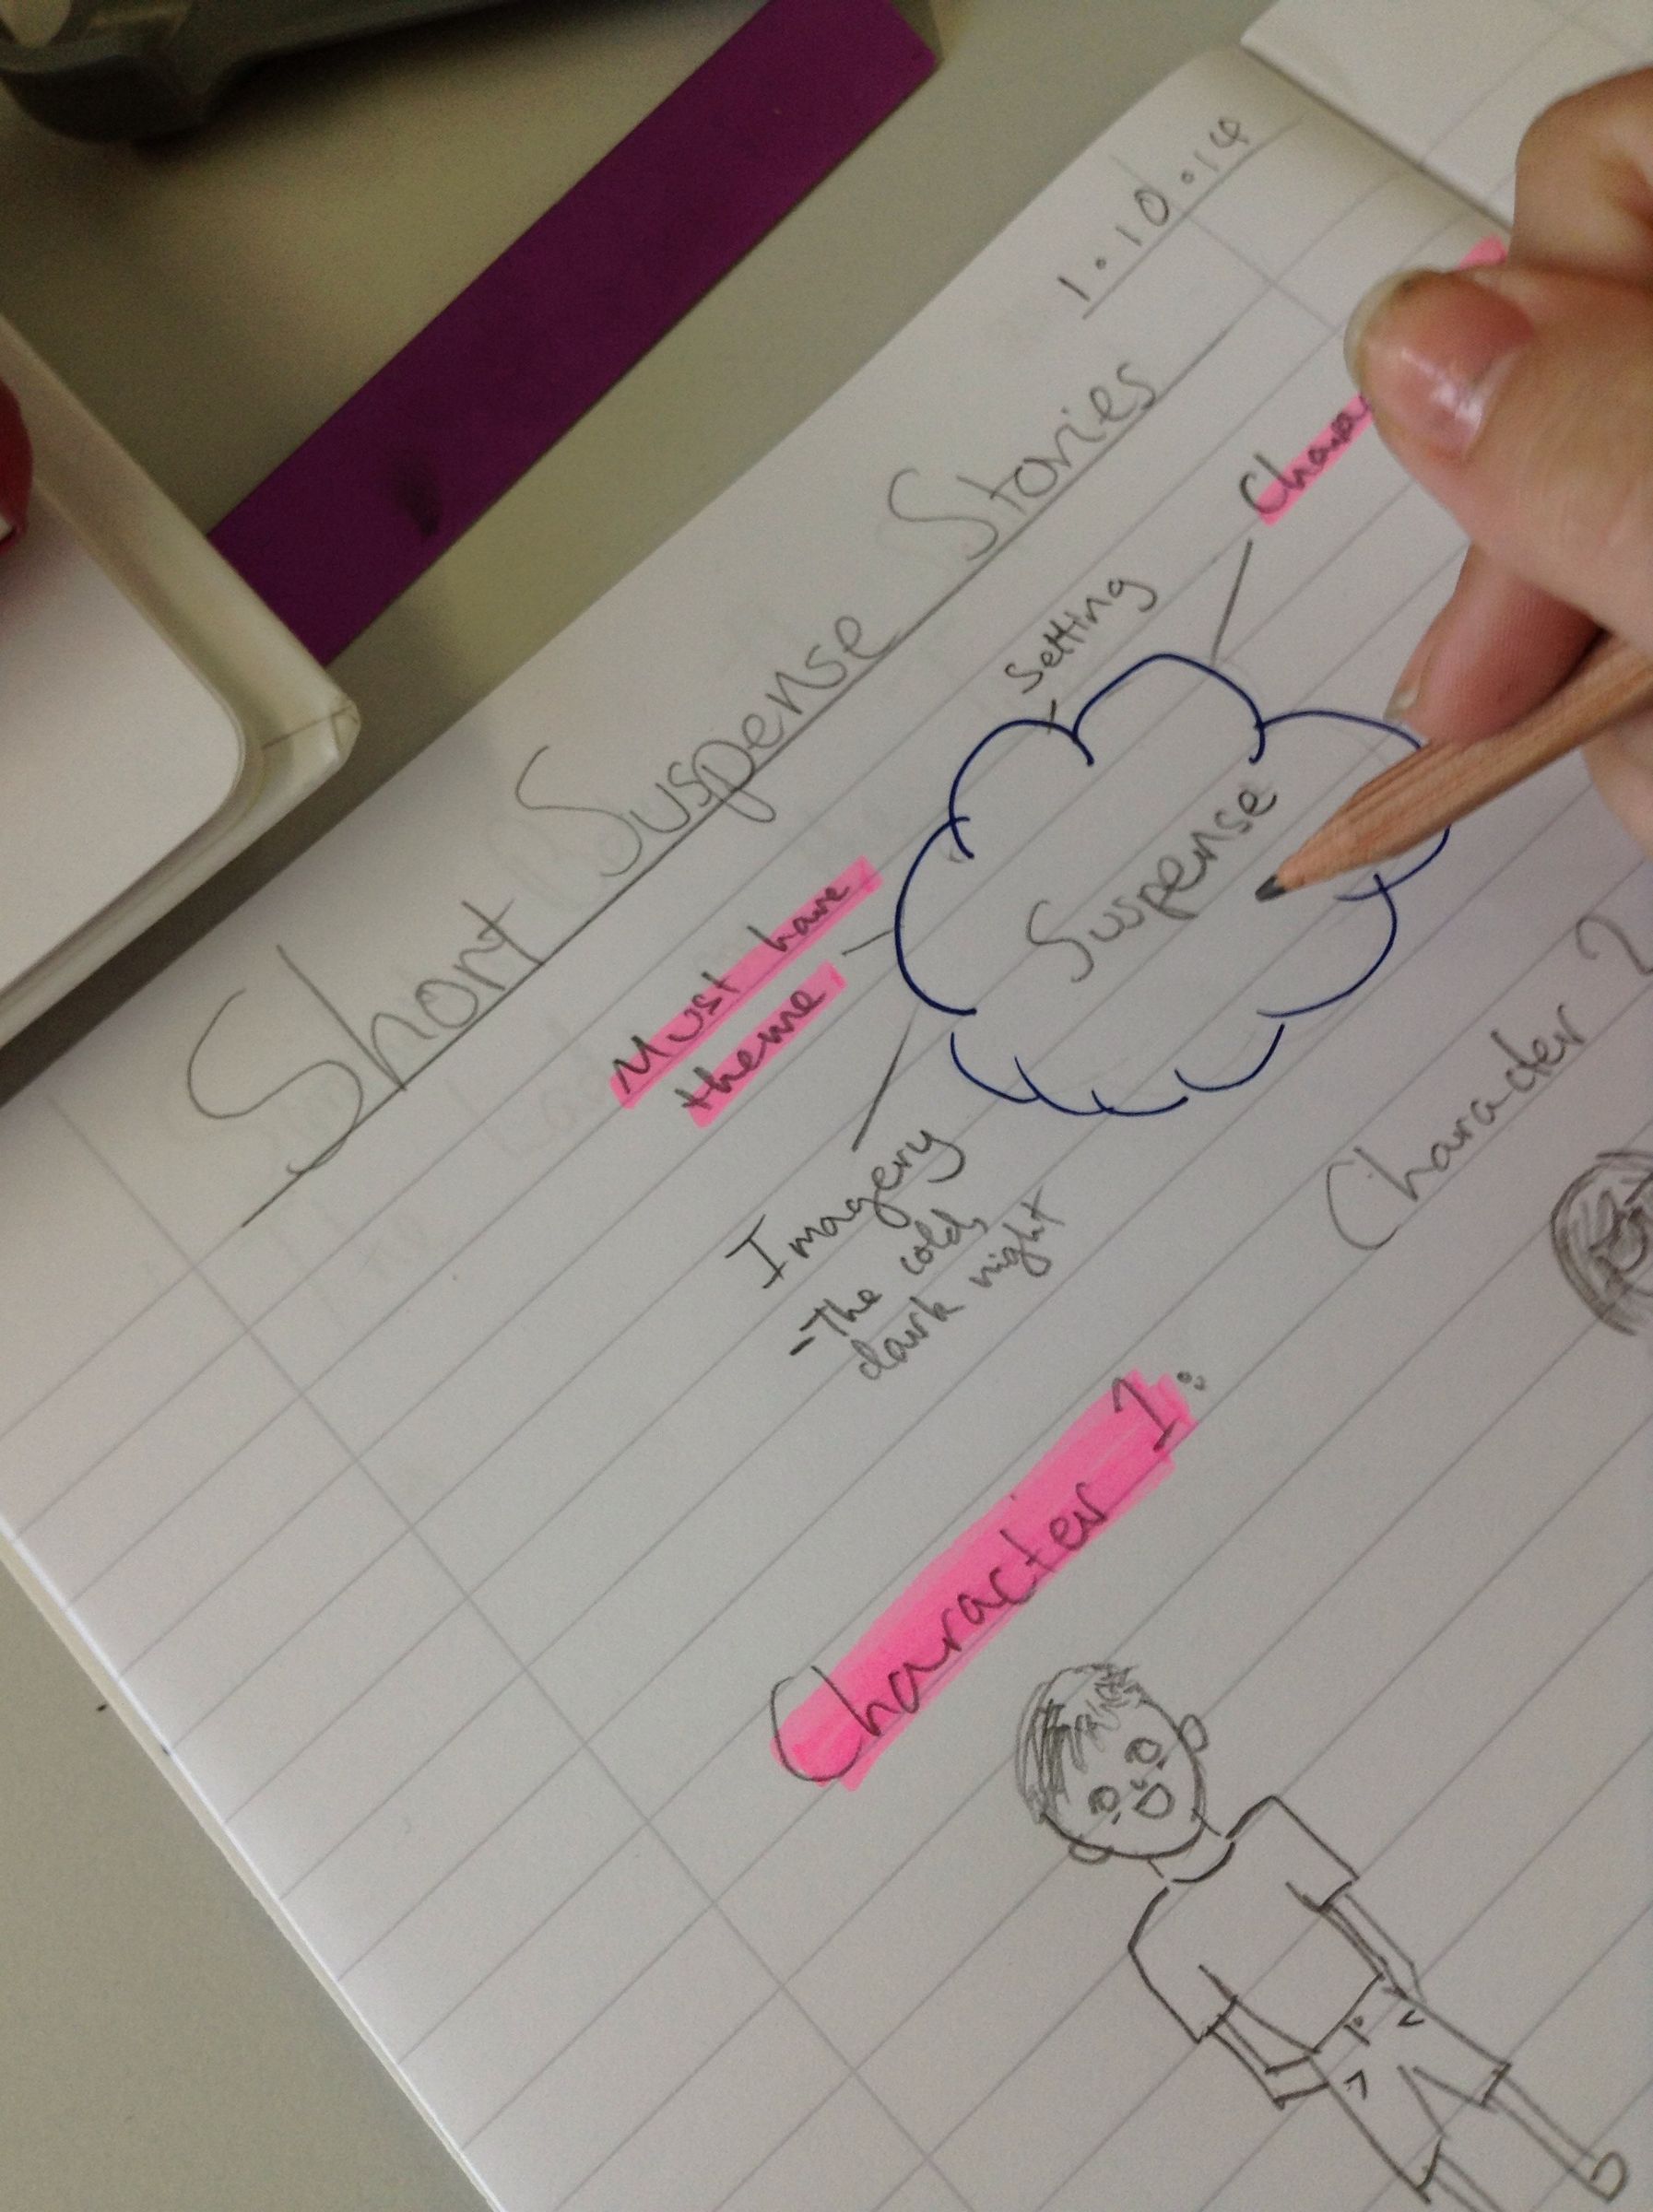 1.10.14
Short Suspense Stories
Setting
Must have
theme
Suspense
Imagery
- The cold,
dark night
Character 1:
Character 2